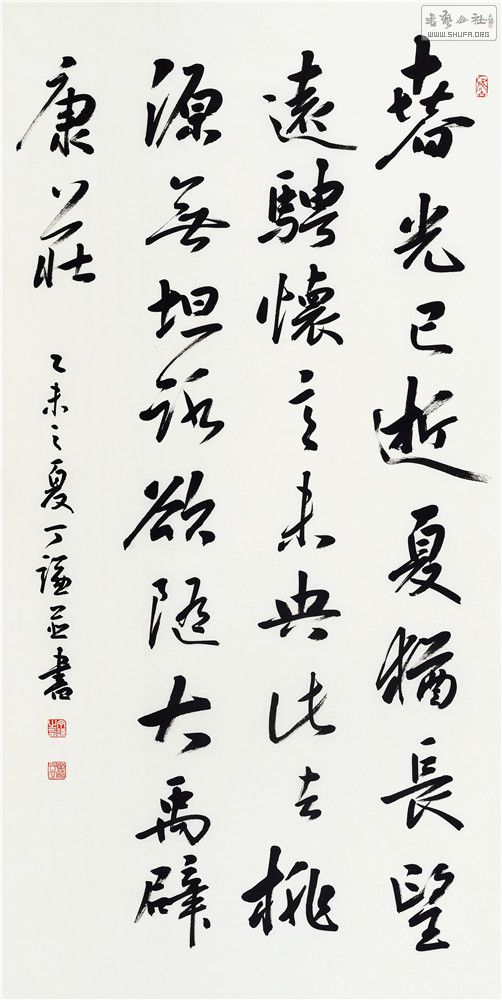 春光已逝夏猶長望
遠騁懷言未央此去桃
源無坦路欲隨大禹辟
康莊
乙未之夏丁謙並書
書藝公社
WWW.SHUFA.ORG